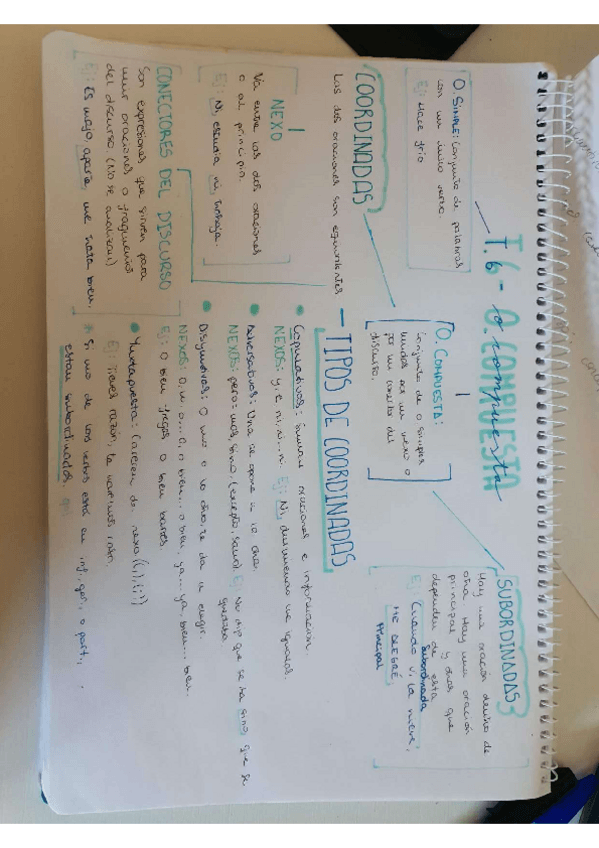 T.6 - O. COMPUESTA
la compuesta
O. SIMPLE: Conjunto de palabras
con un único verbo.
Ej: Hace frío
O. COMPUESTA:
Conjunto de o simples
unidas por un nexo o
por un conector del
discurso.
SUBORDINADAS
Hay una oración dentro de
otra. Hay una oración
principal y otras que
dependen de esta
Ej: Cuando vi la nieve,
Subordinada
ME ALEGRÉ
Principal
COORDINADAS
Las dos oraciones son equivalentes
NEXO
Va entre las dos oraciones
o al principio.
Ej: Ni estudia ni trabaja.
CONECTORES DEL DISCURSO
Son expresiones que sirven para
unir oraciones o fragmentos
del discurso. (No se analizan)
Ej: Es majo, aparte me trata bien,
TIPOS DE COORDINADAS
Copulativas: Suman oraciones e información.
NEXOS: y, e, ni, ni... ni. Ej: Ni
Adversativas: Una se opone a la otra.
NEXOS: pero, mas, sino, (excepto, salvo) Ej: No dijo que se iba sino que se
quedaba
Disyuntivas: O uno o lo otro, te da a elegir.
NEXOS: O, u, o... o, o bien... o bien, ya... ya bien... bien.
Ej: O bien friegas o bien barres
Yuxtapuesta: Carecen de nexo (, ; :)
Ej: Tienes razón, la
Si uno de los verbos está en inf, ger, o part,
están subordinadas.